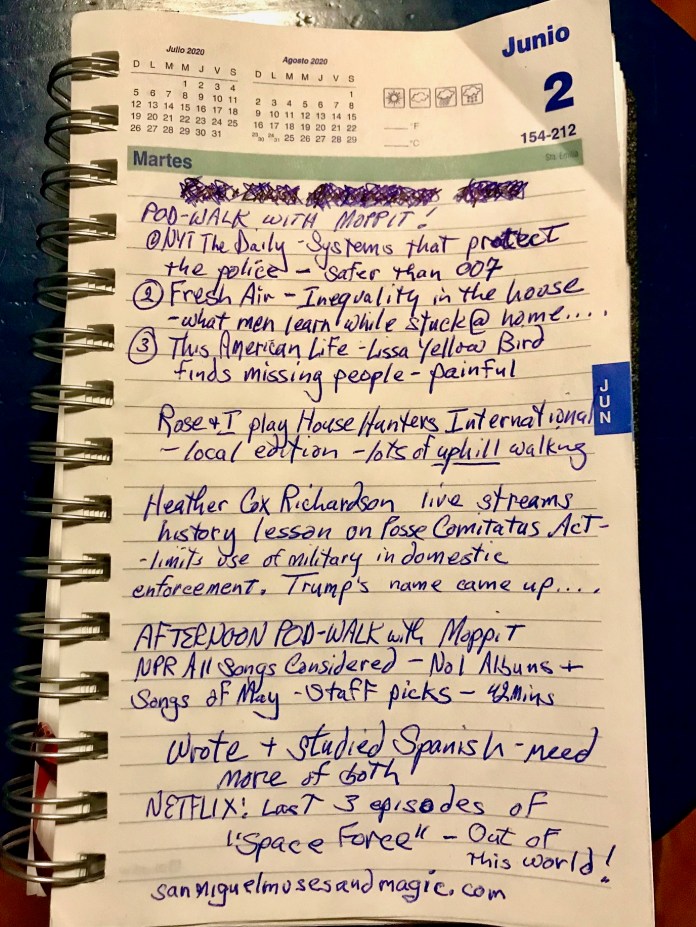 Julio 2020
D L M M J V S
1 2 3 4
5 6 7 8 9 10 11
12 13 14 15 16 17 18
19 20 21 22 23 24 25
26 27 28 29 30 31
Agosto 2020
D L M M J V S
1
2 3 4 5 6 7 8
9 10 11 12 13 14 15
16 17 18 19 20 21 22
23/30 24/31 25 26 27 28 29
°F
°C
Junio
2
154-212
Martes
POD-WALK WITH MOPPIT!
① NYT The Daily - Systems that protect
the police - safer than 007
② Fresh Air - Inequality in the house
- what men learn while stuck @ home....
③ This American Life - Lissa Yellow Bird
finds missing people - painful
JUN
Rose + I play House Hunters International
- local edition - lots of uphill walking
Heather Cox Richardson live streams
history lesson on Posse Comitatus Act -
- limits use of military in domestic
enforcement. Trump's name came up....
AFTERNOON POD-WALK with Moppit
NPR All Songs Considered - No1 Albums +
Songs of May - Staff picks - 42 Mins
Wrote + studied Spanish - need
more of both
NETFLIX! Last 3 episodes of
"Space Force" - Out of
this world!
sanmiguelmusesandmagic.com